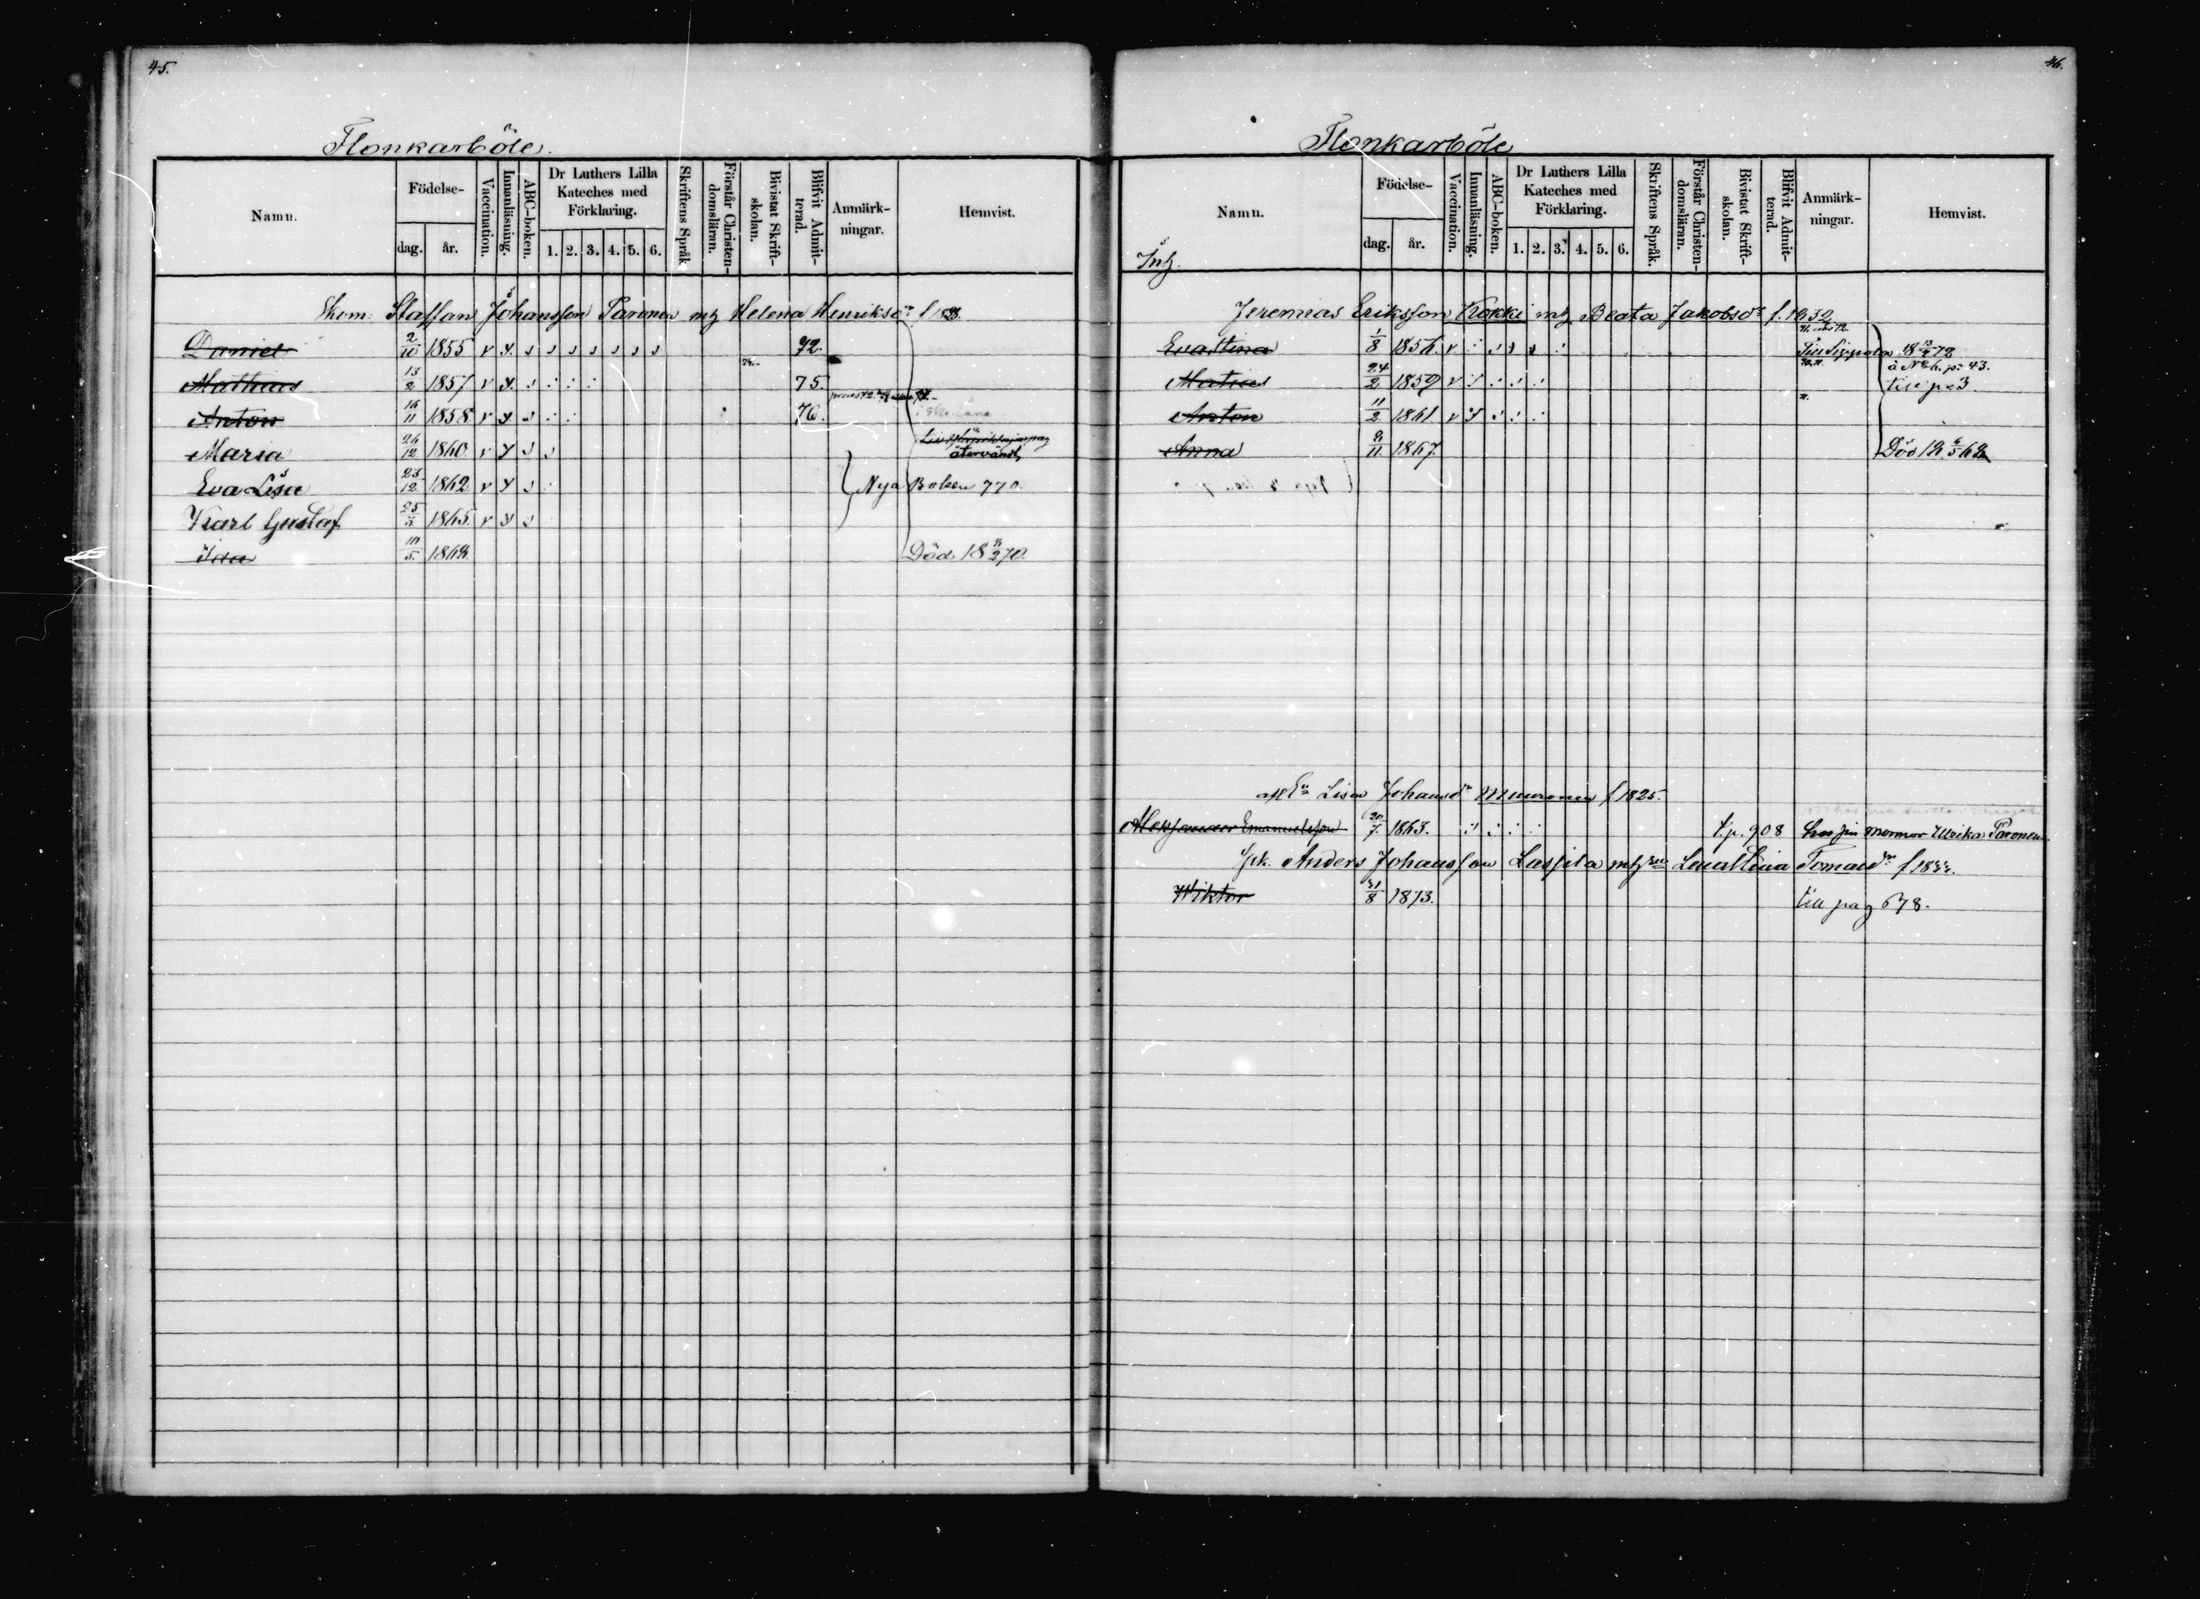 45.
Flonkarböle.
Namn.
Födelse-
dag. år.
Vaccination.
Innanläsning.
ABC-boken.
Dr Luthers Lilla Kateches med Förklaring.
1. 2. 3. 4. 5. 6.
Skriftens Språk
Förstår Christen-domsläran.
Bivistat Skrift-skolan.
Blifvit Admit-terad.
Anmärk-ningar.
Hemvist.
Staffan Johansson Paronen mtz Helena Henriksdr f 1828.
Daniel 2/10 1855 v y. s s s s s s s 72.
Mathias 13/2 1857 v y. s 75.
Anton 16/11 1858 v y. s 76.
Maria 26/12 1860 v y s s återvänd
Eva Lisa 23/12 1862 v y s Nya Balsen 770.
Karl Gustaf 25/3 1865. v y s
Ida 10/5 1868 Död 18 70.
46.
Flonkarböle
Inh.
Namn.
Födelse-
dag. år.
Vaccination.
Innanläsning.
ABC-boken.
Dr Luthers Lilla Kateches med Förklaring.
1. 2. 3. 4. 5. 6.
Skriftens Språk.
Förstår Christen-domsläran.
Bivistat Skrift-skolan.
Blifvit Admit-terad.
Anmärk-ningar.
Hemvist.
Jeremias Eriksson Kokki mtz Beata Jakobsdr f. 1832
Eva Stina 1/8 1856. v Till Sippola 18 72
Matias 24/2 1859 v till p. 3.
Anton 11/2 1861 v
Anna 1867. Död 18 6/5 68
Lisa Johansdr Muuronen f 1825.
Aleksander Emanuelsson 20/7. 1863. t.p. 908 hos sin mormor Ulrika Paronen
Anders Johansson Lassila mtz Lena Stina Tomasdr f 1833.
Wiktor 31/8 1873. till pag 678.